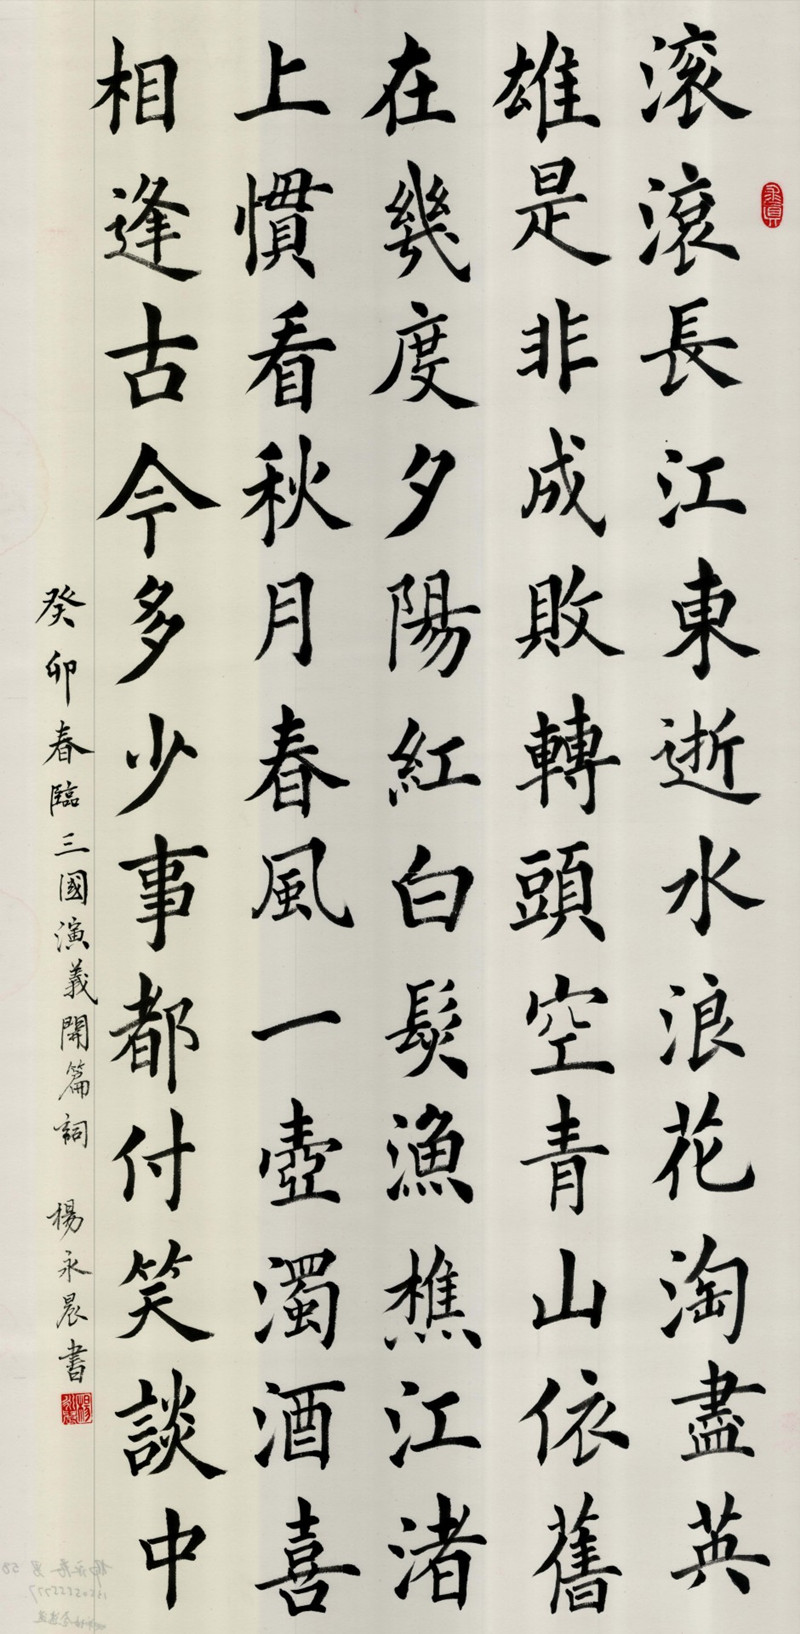 滚滾長江東逝水浪花淘盡英
雄是非成敗轉頭空青山依舊
在幾度夕陽紅白髮漁樵江渚
上慣看秋月春風一壺濁酒喜
相逢古今多少事都付笑談中
癸卯春臨三國演義開篇詞 楊永晨書